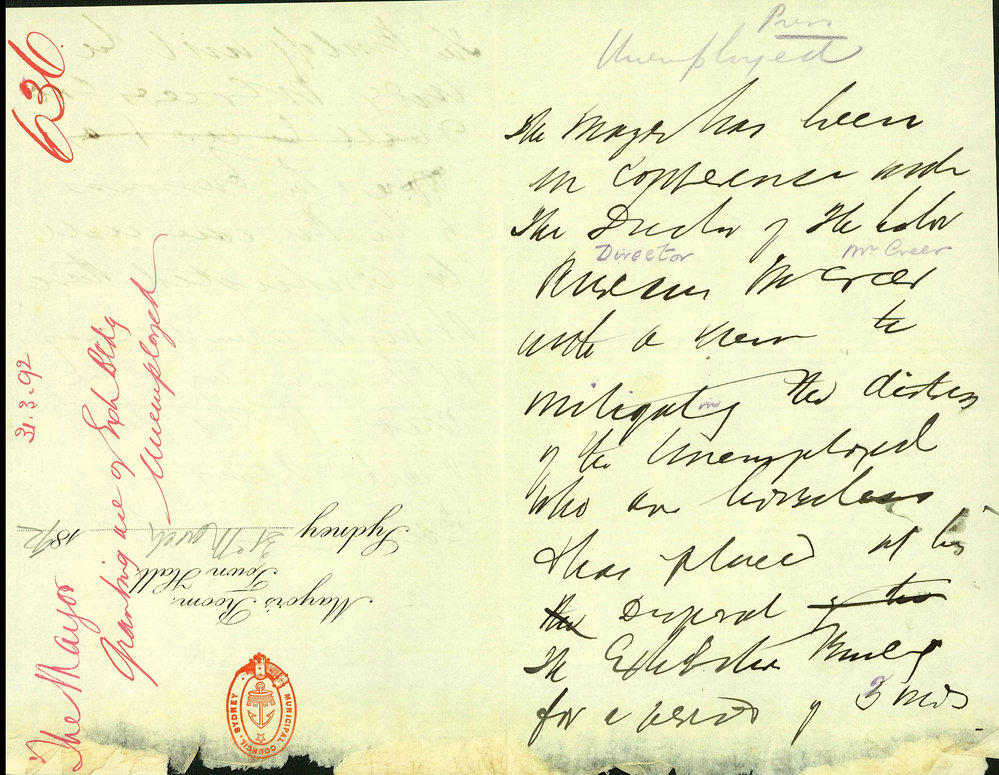 636
31.3.92
The Mayor
Granting use of Exh Bldg
Unemployed
Mayor's Room
Town Hall
Sydney 31st March 1892
MUNICIPAL COUNCIL, SYDNEY
Press
Unemployed
The Mayor has been
in Conference with
The Director of The Labor
Director Mr Creer
Bureau Mr Creer
with a view to
mitigating the distress
of the Unemployed
who are homeless
& has placed at his
the Disposal of the
The Exhibition Building
for a period of 3 mos